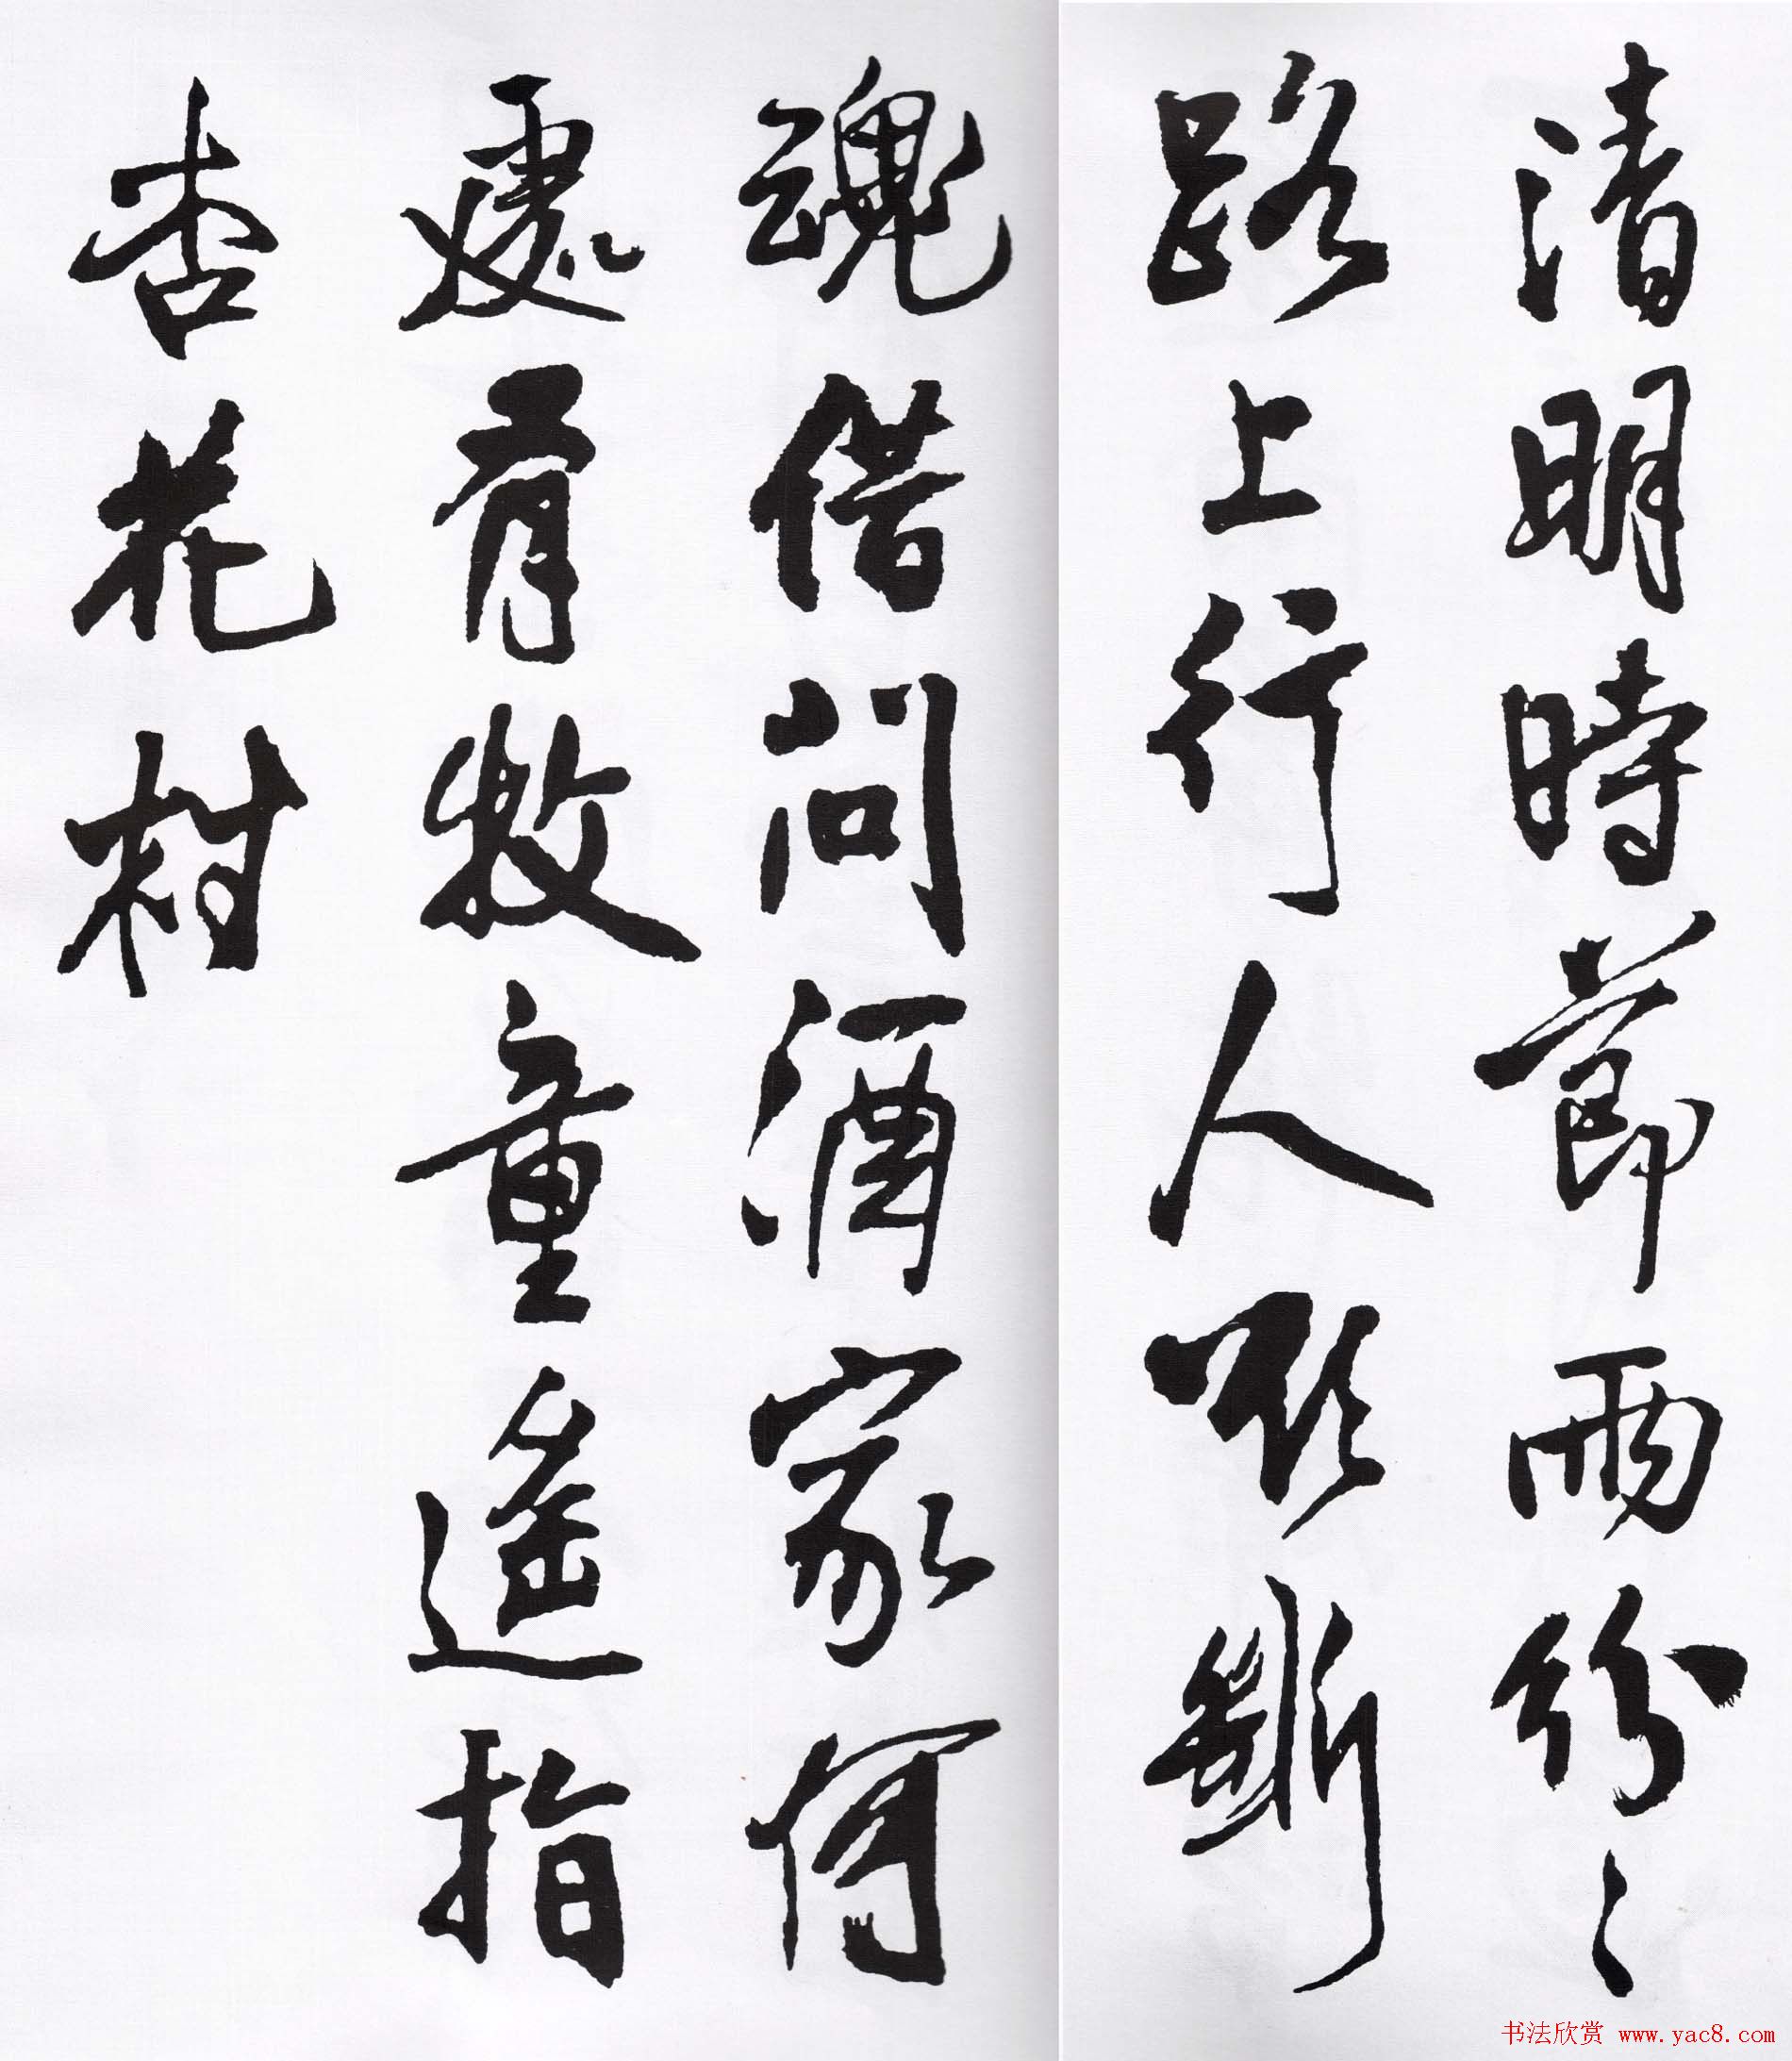 清明時節雨紛〻
路上行人欲斷
魂借問酒家何
處有牧童遙指
杏花村
书法欣赏 www.yac8.com